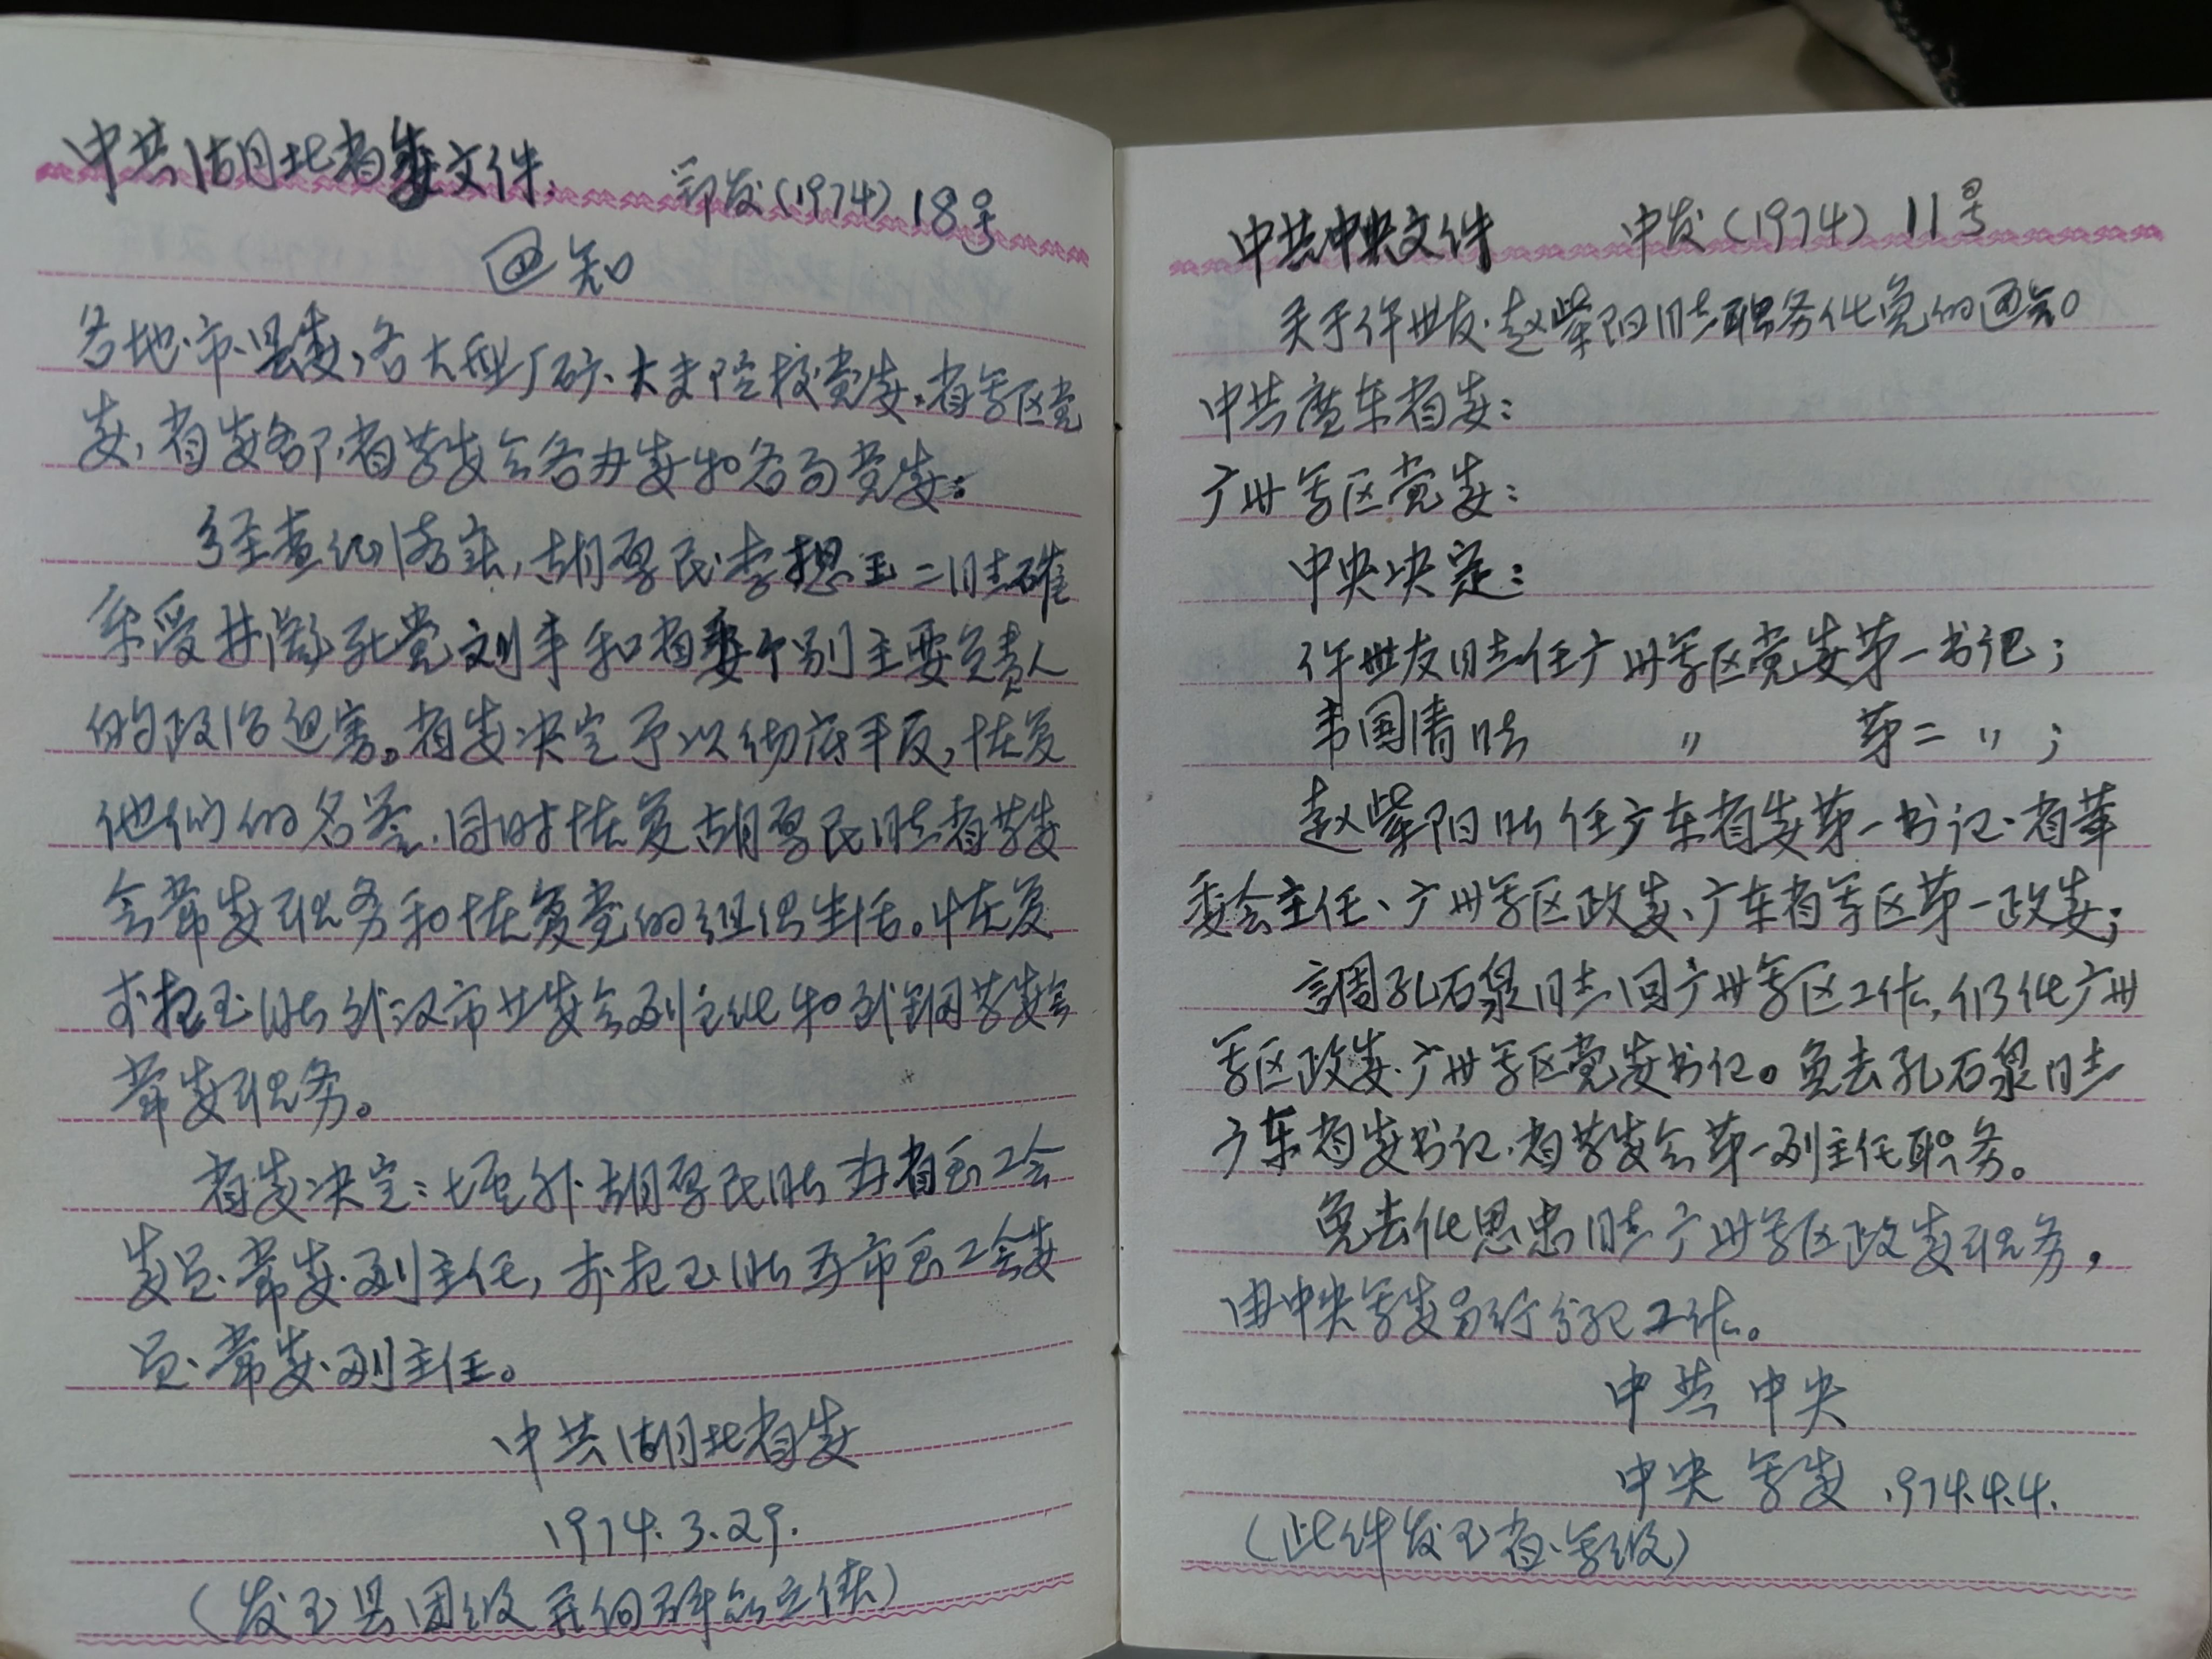 中共湖北省委文件. 鄂发(1974)18号
通知
各地、市、县委,各大型厂矿、大专院校党委,省军区党
委,省委各部、省革委会各办委和各局党委:
经查证落实,胡厚民、李想玉二同志确
系受林彪死党刘丰和省委个别主要负责人
的政治迫害。省委决定予以彻底平反,恢复
他们的名誉.同时恢复胡厚民同志省革委
会常委职务和恢复党的组织生活。恢复
李想玉同志武汉市革委会副主任和武钢革委会
常委职务。
省委决定: 胡厚民同志为省总工会
委员、常委、副主任,李想玉同志为市总工会委
员、常委、副主任。
中共湖北省委
1974.3.29.
(发至县团级
中共中央文件 中发(1974)11号
关于许世友、赵紫阳同志职务任免的通知
中共广东省委:
广州军区党委:
中央决定:
许世友同志任广州军区党委第一书记;
韦国清同志 〃 第二〃;
赵紫阳同志任广东省委第一书记、省革
委会主任、广州军区政委、广东省军区第一政委;
调孔石泉同志回广州军区工作,仍任广州
军区政委、广州军区党委书记。免去孔石泉同志
广东省委书记、省革委会第一副主任职务。
免去任思忠同志广州军区政委职务,
由中央军委另行分配工作。
中共中央
中央军委 1974.4.4.
(此件发至省、军级)